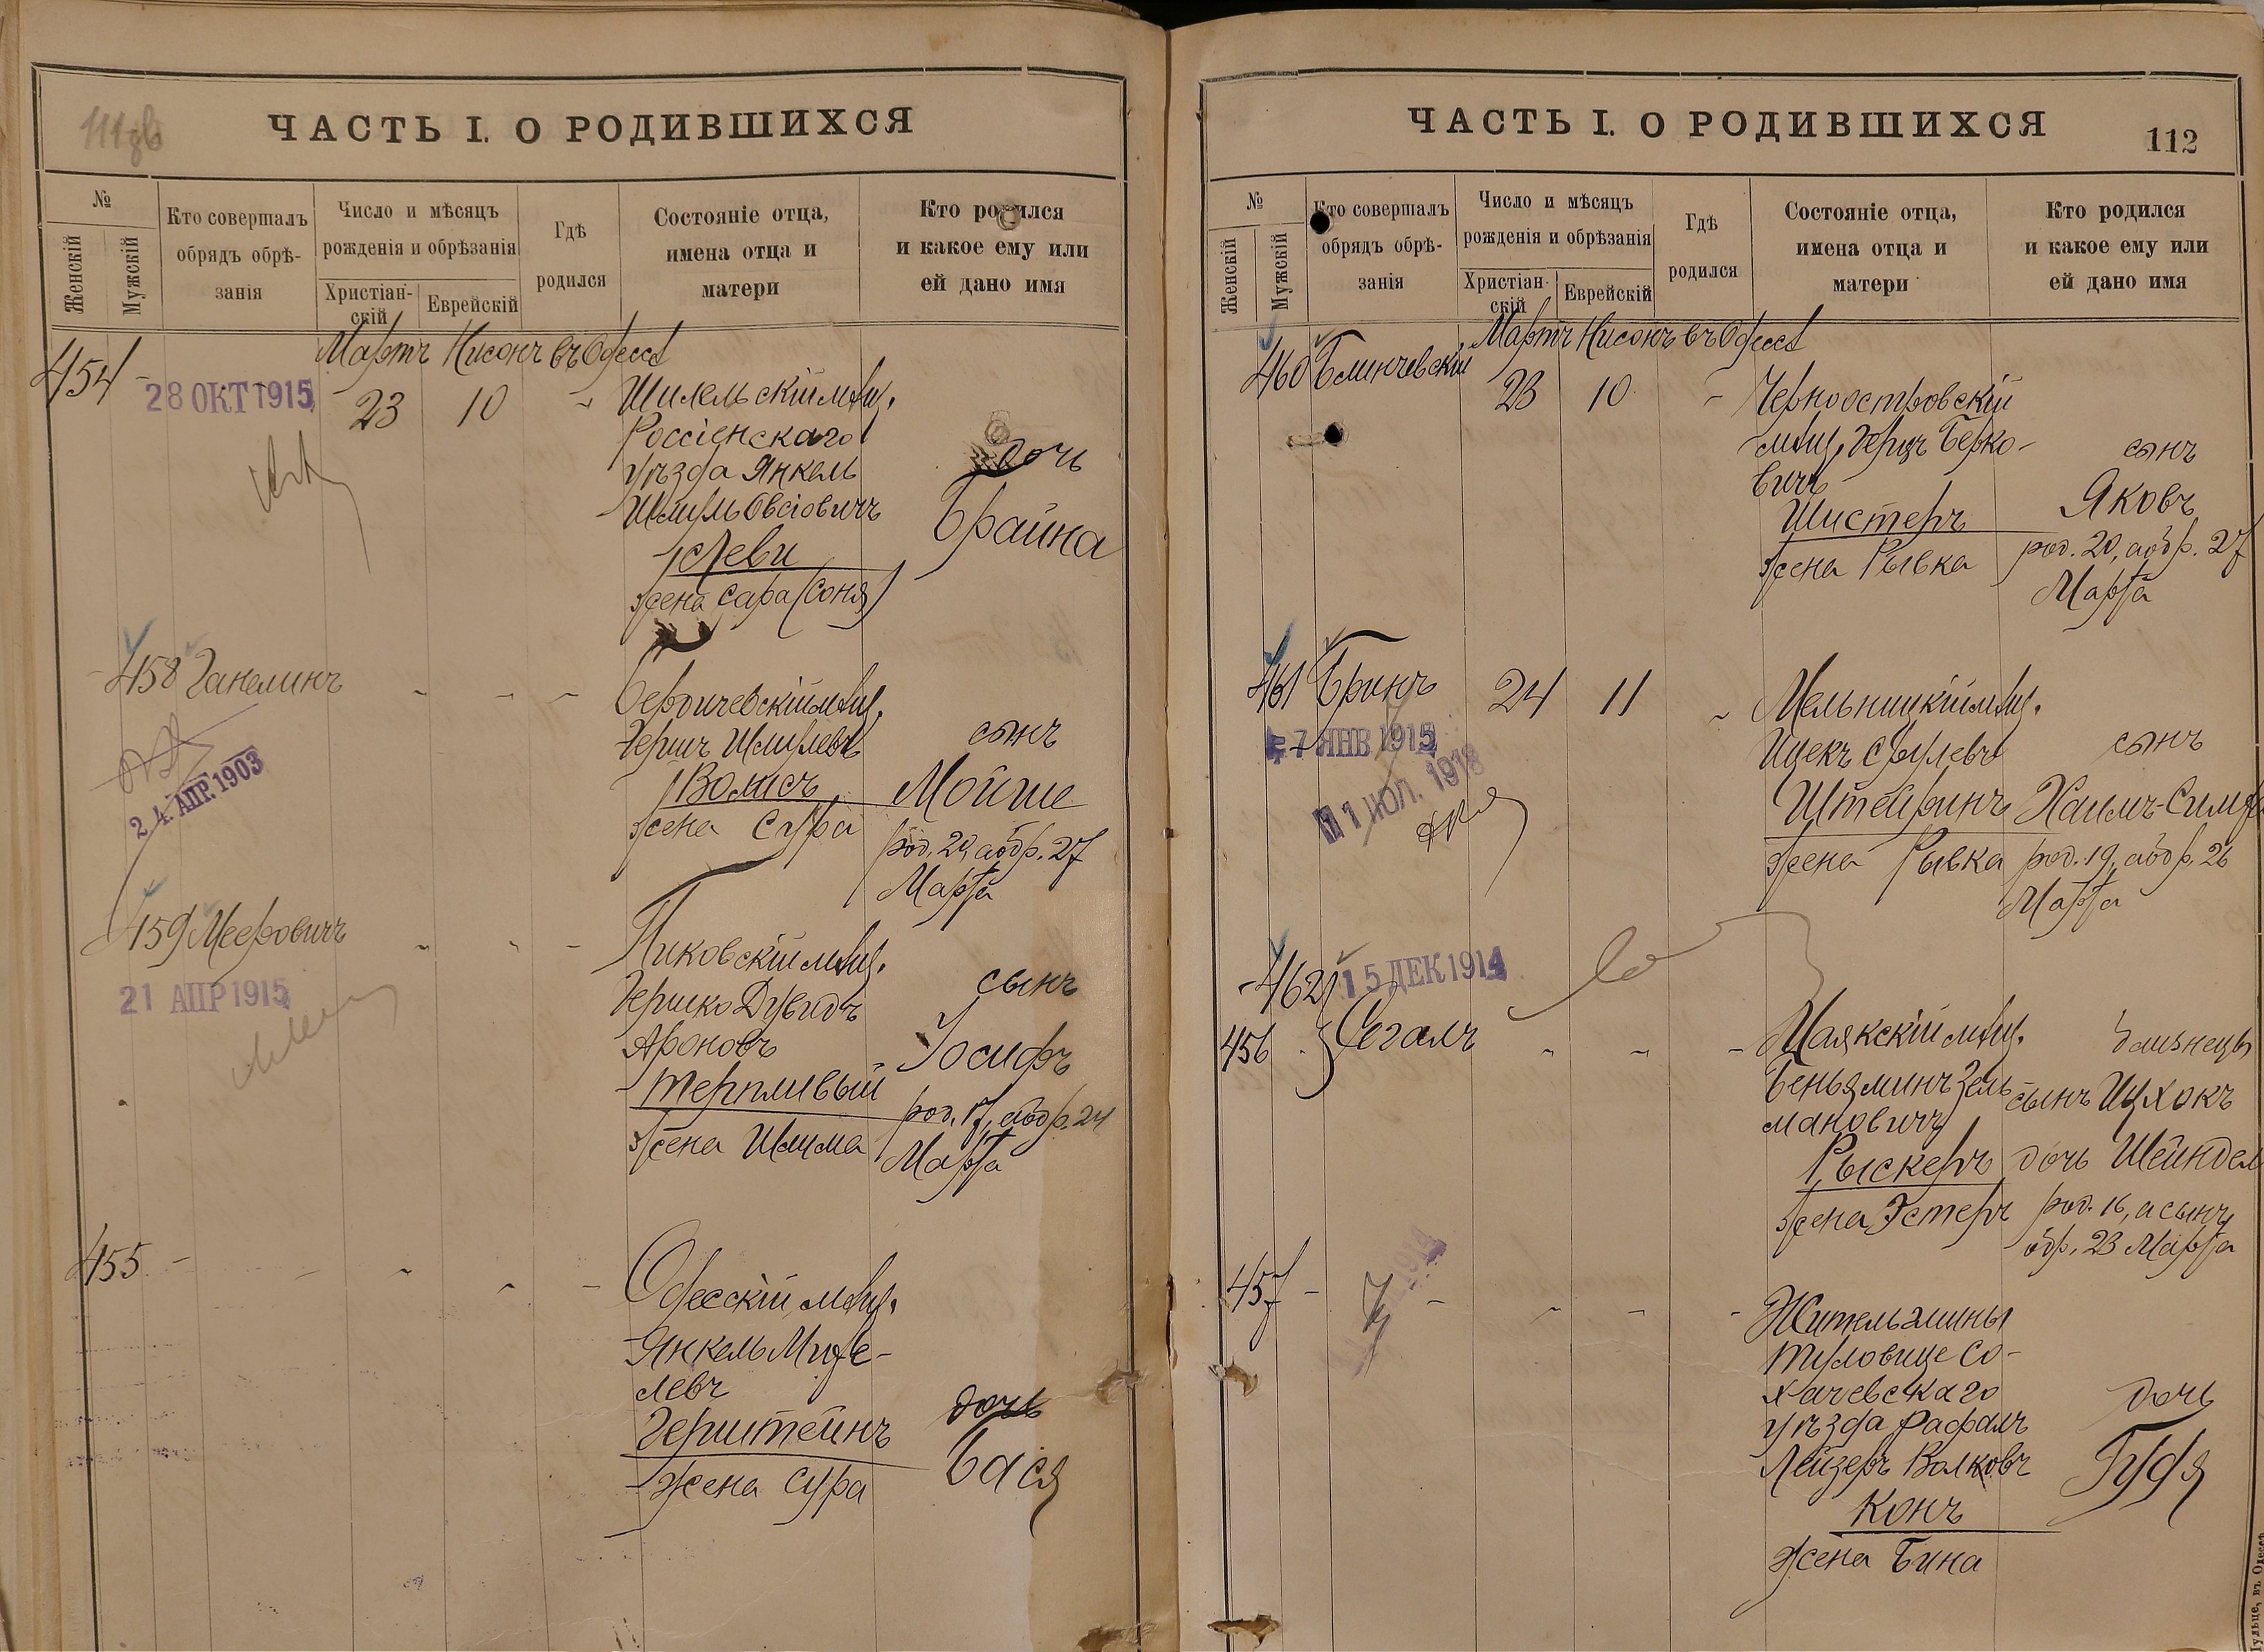 ЧАСТЬ I. О РОДИВШИХСЯ
№
Женскій
Мужскій
Кто совершалъ
обрядъ обрѣ-
занія
Число и мѣсяцъ
рожденія и обрѣзанія
Христіан-
скій
Еврейскій
Гдѣ
родился
Состояніе отца,
имена отца и
матери
Кто родился
и какое ему или
ей дано имя
Мартъ Нисонъ въ Одессѣ
454 -
28 ОКТ 1915
23
10
Шилельскій мѣщ.
Россіенскаго
уѣзда Янкель
Шмуль Овсіовичъ
Леви
жена Сара (Соня)
дочь
Брайна
458 Ганелинъ
24. АПР. 1903
Бердичевскій мѣщ.
Гершъ Шмулевъ
жена Сура
сынъ
Мойше
род. 20, а обр. 27
Марта
459 Мееровичъ
21 АПР 1915
Пиковскій мѣщ.
Гершко Дувидъ
Ароновъ
Терпливый
жена Шлима
сынъ
Іосифъ
род. 17, а обр. 24
Марта
455 -
Одесскій мѣщ.
Янкель Михе-
левъ
Герштейнъ
жена Сура
дочь
Бася
ЧАСТЬ I. О РОДИВШИХСЯ
112
№
Женскій
Мужскій
Кто совершалъ
обрядъ обрѣ-
занія
Число и мѣсяцъ
рожденія и обрѣзанія
Христіан-
скій
Еврейскій
Гдѣ
родился
Состояніе отца,
имена отца и
матери
Кто родился
и какое ему или
ей дано имя
Мартъ Нисонъ въ Одессѣ
460 Блинчевскій
23
10
Черноостровскій
мѣщ. Герцъ Берко-
вичъ
Шистеръ
жена Рывка
сынъ
Яковъ
род. 20, а обр. 27
Марта
461 Бринъ
7 ЯНВ 1915
1 ИЮЛ. 1918
24
11
Мельницкій мѣщ.
Ицекъ Срулевъ
Штейринъ
жена Рывка
сынъ
Хаимъ-Симха
род. 19, а обр. 26
Марта
462
15 ДЕК 1914
456
Сегалъ
Маякскій мѣщ.
Беньяминъ Зель
мановичъ
Рыскеръ
жена Эстеръ
близнецы
сынъ Ицхокъ
дочь Шейндель
род. 16, а сынъ
обр. 23 Марта
457 -
Житель гмины
Туловице Со-
хачевскаго
уѣзда Рафалъ
Лейзеръ Волковъ
Конъ
жена Бина
дочь
Гудя